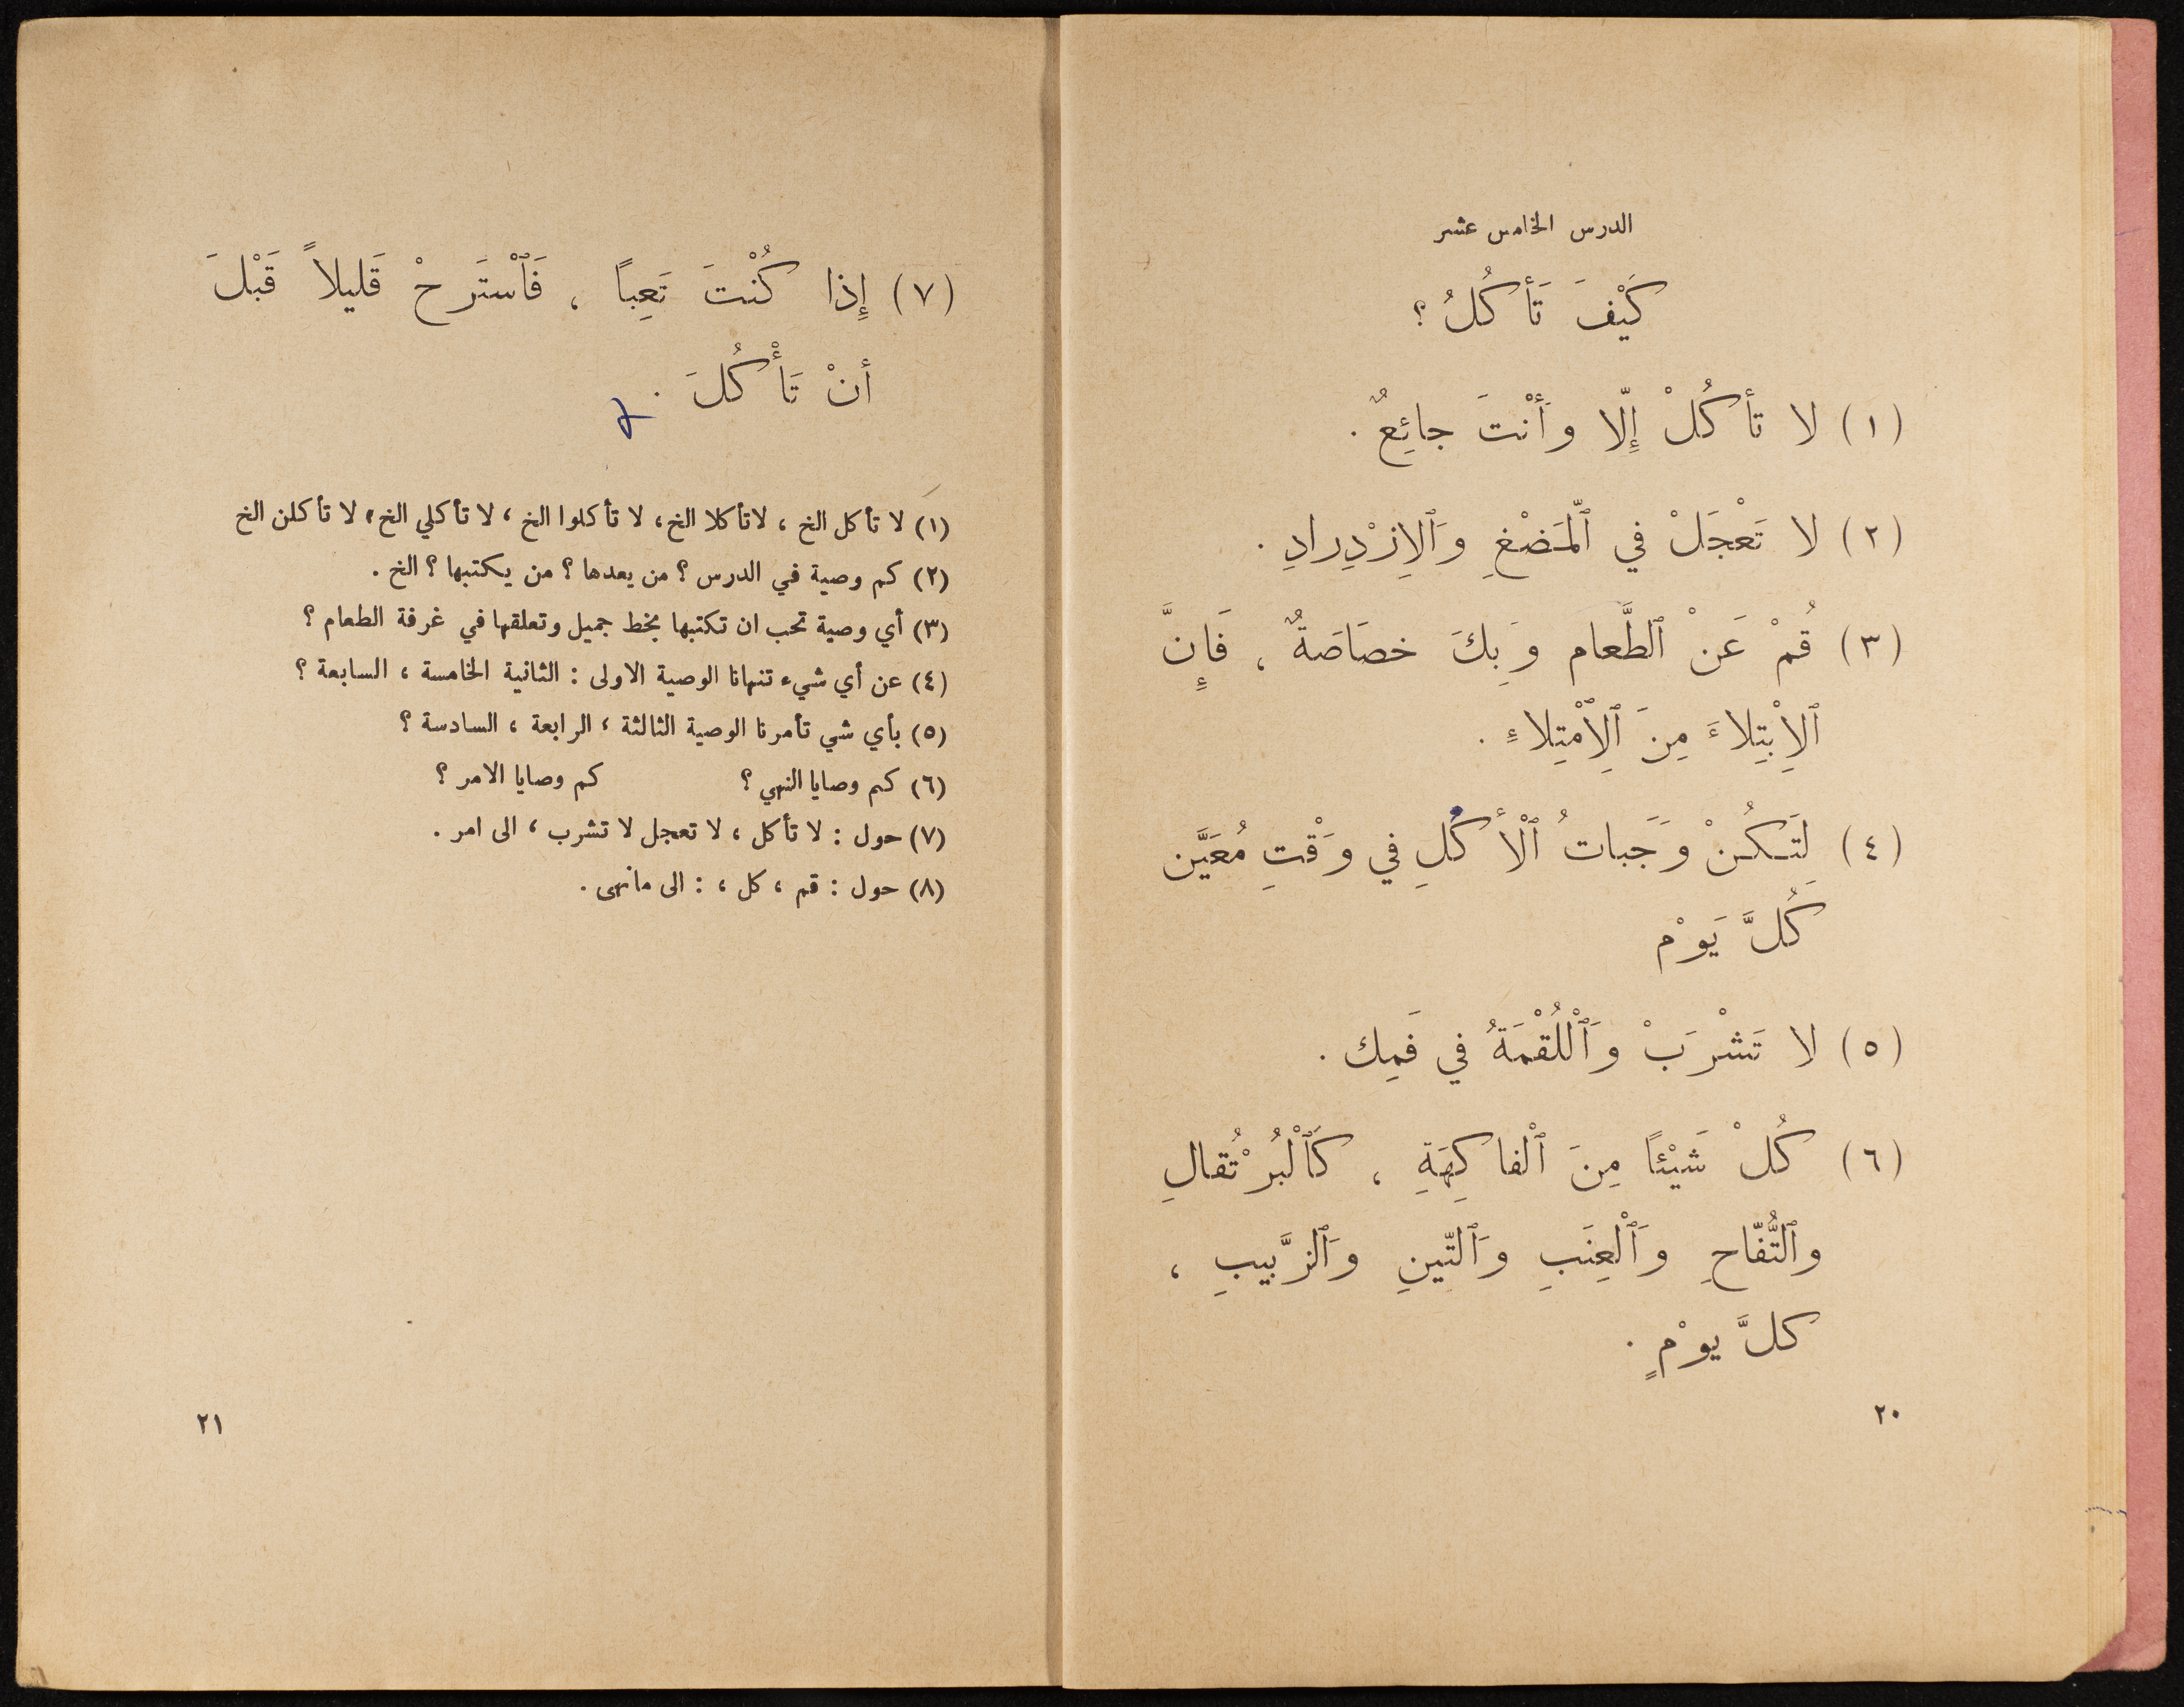 الدرس الخامس عشر
كَيْفَ تَأكُلُ ؟
(١) لا تأكُلْ إلّا وأَنْتَ جائِعٌ .
(٢) لا تَعْجَلْ في ٱلْمَضْغِ وَٱلِازْدِرادِ .
(٣) قُمْ عَنْ ٱلطَّعام وَبِكَ خصَاصَةٌ ، فَإِنَّ
ٱلِابْتِلاءَ مِنَ ٱلِٱمْتِلاءِ .
(٤) لِتَكُنْ وَجَباتُ ٱلْأَكُلِ في وَقْتِ مُعَيَّن
كُلَّ يَوْم
(٥) لا تَشْرَبْ وَٱلْلُقْمَةُ في فَمِك .
(٦) كُلْ شَيْئًا مِنَ ٱلْفاكِهَةِ ، كَٱلْبُرْتُقالِ
وٱلتُّفّاحِ وَٱلْعِنَبِ وَٱلتّينِ وَٱلزَّبيبِ ،
كلَّ يوْمٍ .
٢٠
(٧) إِذا كُنْتَ تَعِباً ، فَٱسْتَرحْ قَليلاً قَبْلَ
أنْ تَأْكُلَ .
(١) لا تأكل الخ ، لاتأكلا الخ، لا تأكلوا الخ ، لا تأكلي الخ، لا تأكلن الخ
(٢) كم وصية في الدرس ؟ من يعدها ؟ من يكتبها ؟ الخ .
(٣) أي وصية تحب ان تكتبها بخط جميل وتعلقها في غرفة الطعام ؟
(٤) عن أي شيء تنهانا الوصية الاولى : الثانية الخامسة ، السابعة ؟
(٥) بأي شي تأمرنا الوصية الثالثة ، الرابعة ، السادسة ؟
(٦) كم وصايا النهي ؟ كم وصايا الامر ؟
(٧) حول : لا تأكل ، لا تعجل لا تشرب ، الى امر .
(٨) حول : قم ، كل ، : الى مانهى .
٢١